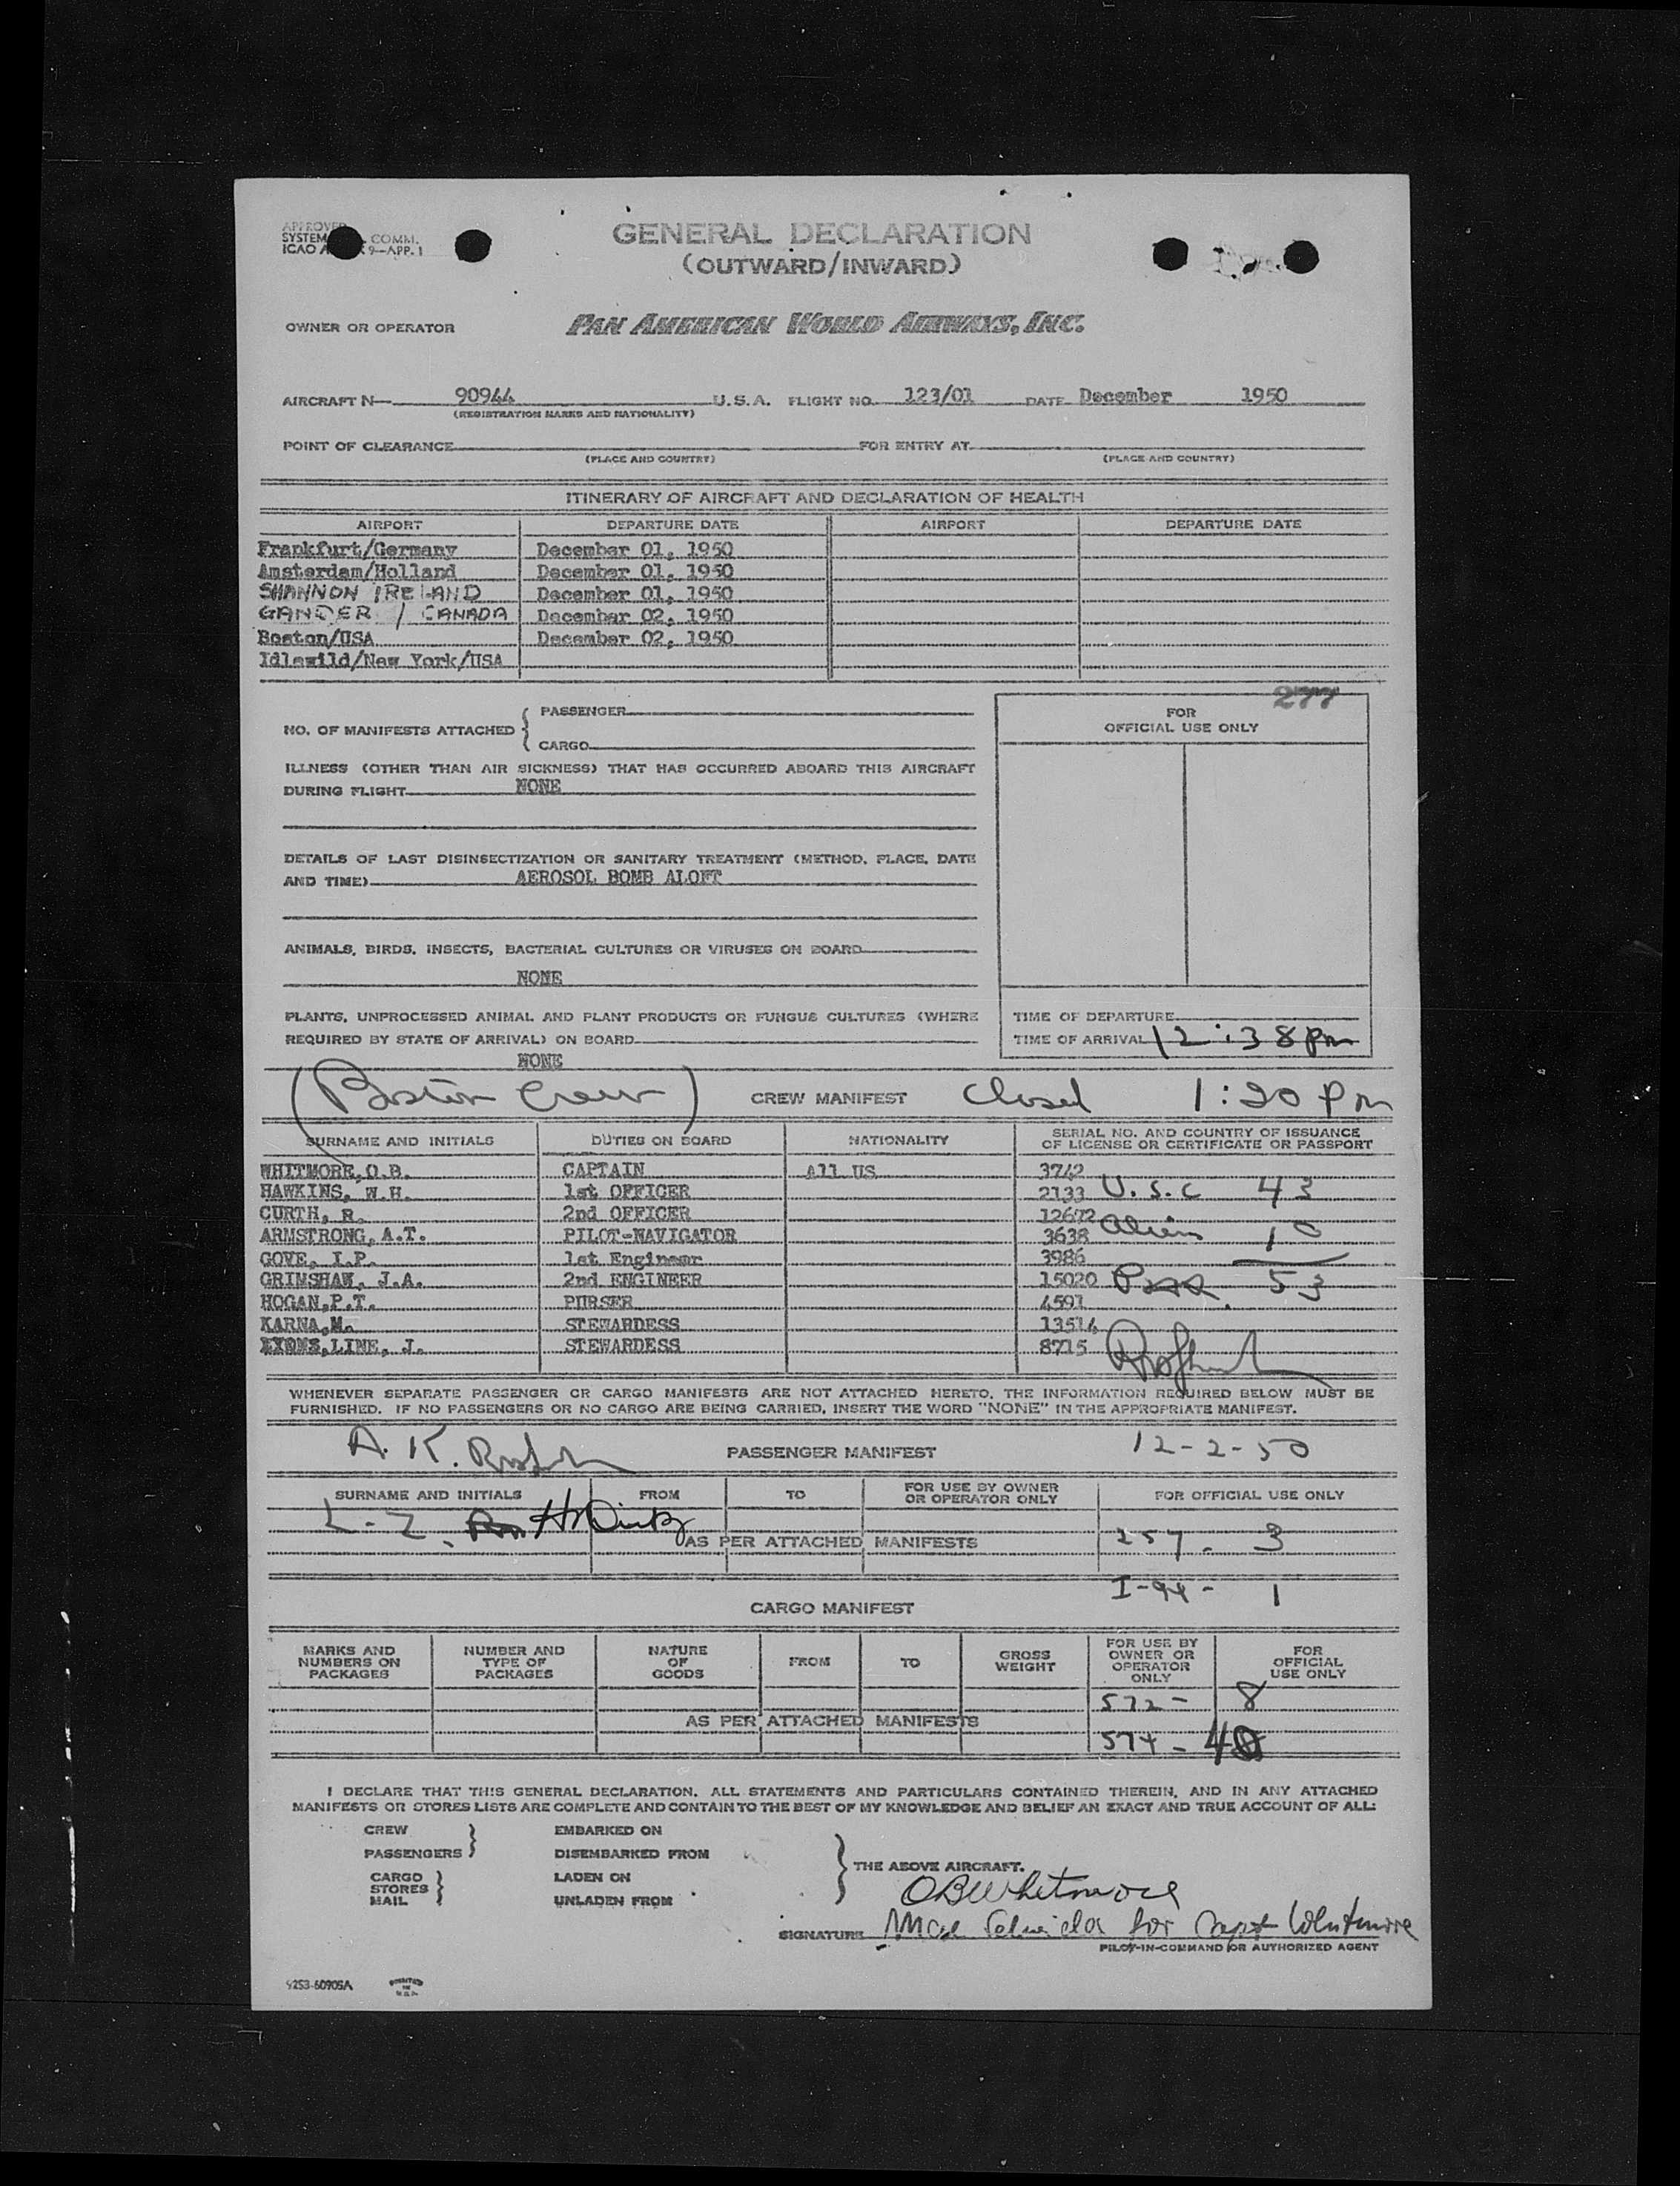 APPROVED
SYSTEM COMM.
ICAO 9-APP. 1
GENERAL DECLARATION
(OUTWARD/INWARD)
OWNER OR OPERATOR PAN AMERICAN WORLD AIRWAYS, INC.
AIRCRAFT N— 90944 U.S.A. FLIGHT NO. 123/01 DATE December 1950
(REGISTRATION MARKS AND NATIONALITY)
POINT OF CLEARANCE FOR ENTRY AT
(PLACE AND COUNTRY) (PLACE AND COUNTRY)
ITINERARY OF AIRCRAFT AND DECLARATION OF HEALTH
AIRPORT DEPARTURE DATE AIRPORT DEPARTURE DATE
Frankfurt/Germany December 01, 1950
Amsterdam/Holland December 01, 1950
SHANNON IRELAND December 01, 1950
GANDER / CANADA December 02, 1950
Boston/USA December 02, 1950
Idlewild/New York/USA
277
NO. OF MANIFESTS ATTACHED { PASSENGER
CARGO
FOR
OFFICIAL USE ONLY
ILLNESS (OTHER THAN AIR SICKNESS) THAT HAS OCCURRED ABOARD THIS AIRCRAFT
DURING FLIGHT NONE
DETAILS OF LAST DISINSECTIZATION OR SANITARY TREATMENT (METHOD, PLACE, DATE
AND TIME) AEROSOL BOMB ALOFT
ANIMALS, BIRDS, INSECTS, BACTERIAL CULTURES OR VIRUSES ON BOARD
NONE
PLANTS, UNPROCESSED ANIMAL AND PLANT PRODUCTS OR FUNGUS CULTURES (WHERE
REQUIRED BY STATE OF ARRIVAL) ON BOARD
NONE
TIME OF DEPARTURE
TIME OF ARRIVAL 12:38 pm
(Boston Crew) CREW MANIFEST Closed 1:20 pm
SURNAME AND INITIALS DUTIES ON BOARD NATIONALITY SERIAL NO. AND COUNTRY OF ISSUANCE
OF LICENSE OR CERTIFICATE OR PASSPORT
WHITMORE,O.B. CAPTAIN All US 3742
HAWKINS, W.H. 1st OFFICER 2133 U.S.C 43
CURTH, R. 2nd OFFICER 12672
ARMSTRONG, A.T. PILOT-NAVIGATOR 3638 Aliens 10
GOVE, I.P. 1st Engineer 3986
GRIMSHAW, J.A. 2nd ENGINEER 15020 Pass. 53
HOGAN,P.T. PURSER 4591
KARNA,M. STEWARDESS 13514
LINE, J. STEWARDESS 8715
WHENEVER SEPARATE PASSENGER OR CARGO MANIFESTS ARE NOT ATTACHED HERETO, THE INFORMATION REQUIRED BELOW MUST BE
FURNISHED. IF NO PASSENGERS OR NO CARGO ARE BEING CARRIED, INSERT THE WORD "NONE" IN THE APPROPRIATE MANIFEST.
A. K. PASSENGER MANIFEST 12-2-50
SURNAME AND INITIALS FROM TO FOR USE BY OWNER
OR OPERATOR ONLY FOR OFFICIAL USE ONLY
L-Z
AS PER ATTACHED MANIFESTS 257 - 3
I-94 - 1
CARGO MANIFEST
MARKS AND
NUMBERS ON
PACKAGES
NUMBER AND
TYPE OF
PACKAGES
NATURE
OF
GOODS
FROM TO GROSS
WEIGHT
FOR USE BY
OWNER OR
OPERATOR
ONLY
FOR
OFFICIAL
USE ONLY
572 - 8
AS PER ATTACHED MANIFESTS
574 -
I DECLARE THAT THIS GENERAL DECLARATION, ALL STATEMENTS AND PARTICULARS CONTAINED THEREIN, AND IN ANY ATTACHED
MANIFESTS OR STORES LISTS ARE COMPLETE AND CONTAIN TO THE BEST OF MY KNOWLEDGE AND BELIEF AN EXACT AND TRUE ACCOUNT OF ALL:
CREW EMBARKED ON
PASSENGERS DISEMBARKED FROM
CARGO LADEN ON
STORES
MAIL UNLADEN FROM
THE ABOVE AIRCRAFT.
OBWhitmore
SIGNATURE for Capt Whitmore
PILOT-IN-COMMAND OR AUTHORIZED AGENT
9253-60905A PRINTED
IN
U.S.A.